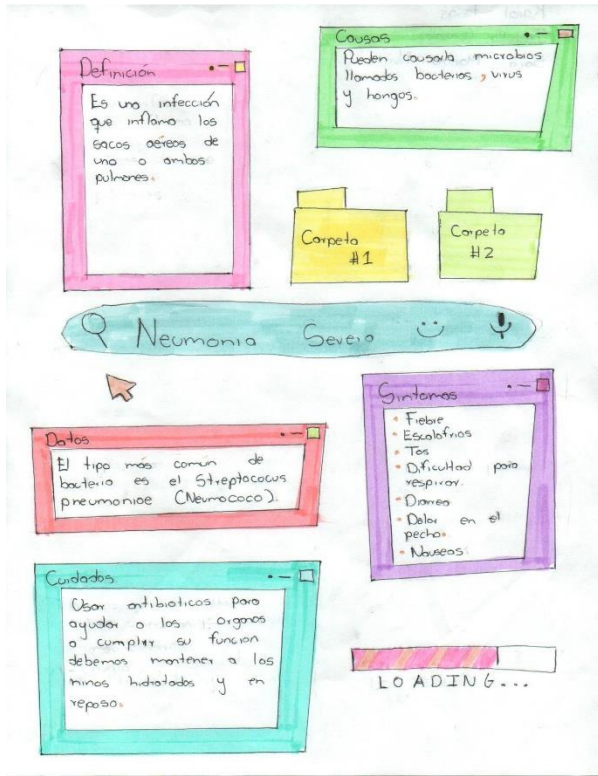 Definición
Es una infección
que inflama los
sacos aéreos de
uno o ambos
pulmones.
Causas
Pueden causarla microbios
llamados bacterias, virus
y hongos.
Carpeta
#1
Carpeta
#2
Neumonia Severa
Datos
El tipo más común de
bacteria es el Streptococus
pneumoniae (Neumococo).
Sintomas
Fiebre
Escalofrios
Tos
Dificultad para
respirar.
Diarrea
Dolor en el
pecho.
Nauseas
Cuidados
Usar antibioticos para
ayudar a los organos
a cumplir su función
debemos mantener a los
niños hidratados y en
reposo.
LOADING...